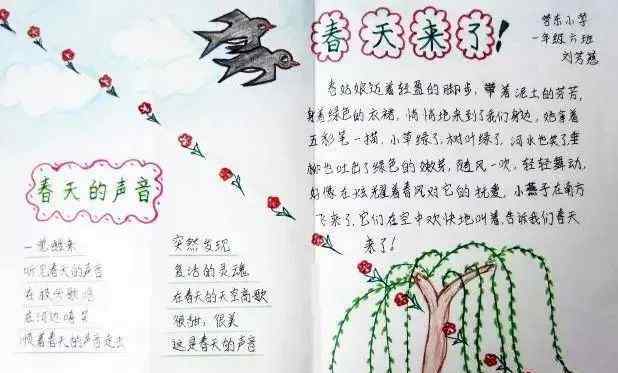 春天的声音
一觉醒来
听见春天的声音
在枝头歌唱
在河边嬉笑
顺着春天的声音走去
突然发现
复活的灵魂
在春天的天空高歌
很甜，很美
这是春天的声音
春天来了！
一年级六班
春姑娘迈着轻盈的脚步，带着泥土的芳芳，
身着绿色的衣裙，悄悄地来到了我们身边，她拿着
五彩笔一描，小草绿了，树叶绿了，河水也笑了垂
柳也吐出了绿色的嫩芽，随风一吹，轻轻舞动，
好像在炫耀着春风对它的抚爱，小燕子在南方
飞来了，它们在空中欢快地叫着，告诉我们春天
来了！